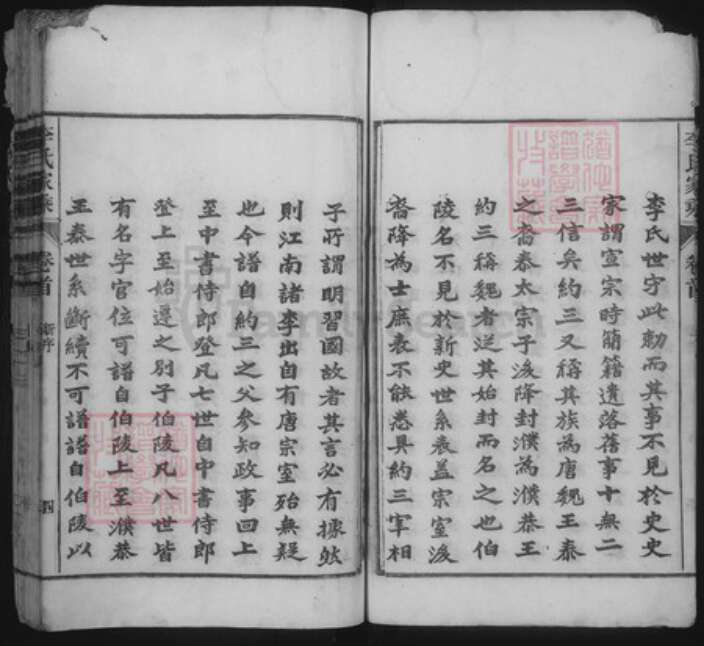 李氏家乘
卷首
李氏世守此勅而其事不見於史史
家謂宣宗時簡籍遺落舊事十無二
三信矣約三又稱其族為唐魏王泰
之裔泰太宗子後降封濮為濮恭王
約三稱魏者送其始封而名之也伯
陵名不見於新史世系表盖宗室後
裔降為士庶表不能悉具約三宰相
子所謂明習國故者其言必有據然
則江南諸李出自有唐宗室殆無疑
也今譜自約三之父參知政事回上
至中書侍郎登凡七世自中書侍郎
登上至始遷之別子伯陵凡八世皆
有名字官位可譜自伯陵上至濮恭
王泰世系斷續不可譜譜自伯陵以
李氏家乘
卷首
新序
四
FamilySearch